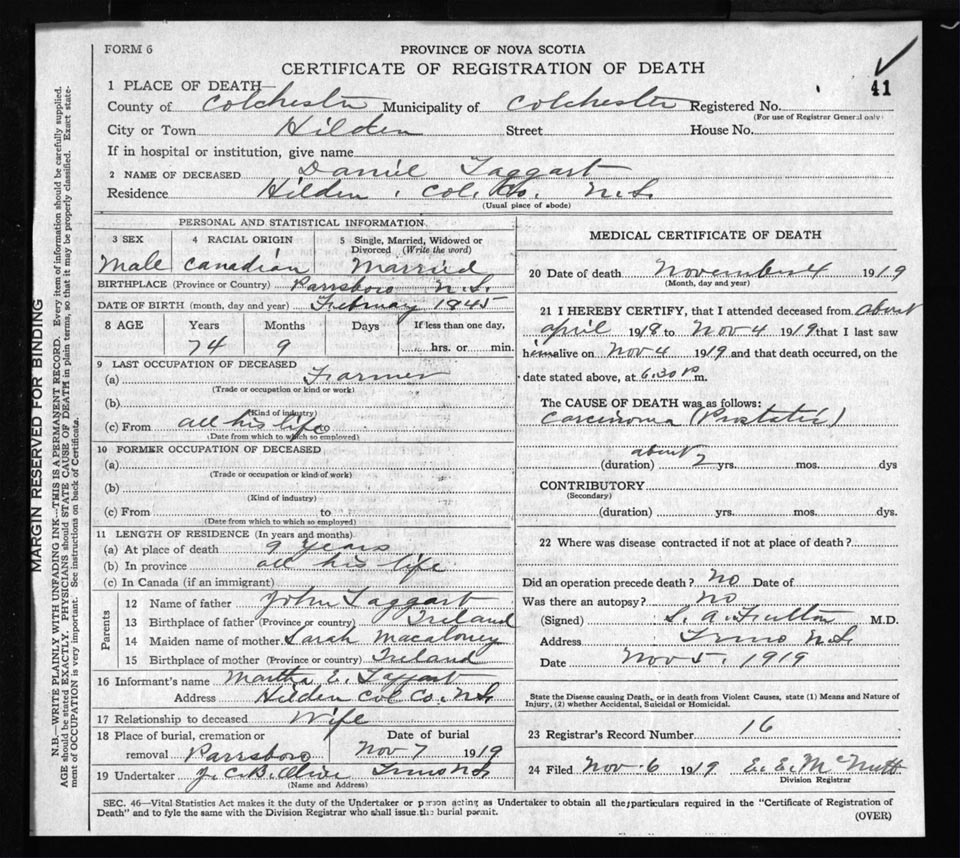 FORM 6
PROVINCE OF NOVA SCOTIA
CERTIFICATE OF REGISTRATION OF DEATH
41
1 PLACE OF DEATH—
County of Colchester Municipality of Colchester Registered No.
(For use of Registrar General only)
City or Town Hilden Street House No.
If in hospital or institution, give name
2 NAME OF DECEASED Daniel Taggart
Residence Hilden. Col. Co. N.S.
(Usual place of abode)
PERSONAL AND STATISTICAL INFORMATION
3 SEX 4 RACIAL ORIGIN 5 Single, Married, Widowed or
Divorced (Write the word)
Male Canadian Married
BIRTHPLACE (Province or Country) Parrsboro N.S.
DATE OF BIRTH (month, day and year) February 1845
8 AGE Years Months Days If less than one day,
74 9 hrs. or min.
9 LAST OCCUPATION OF DECEASED
(a) Farmer
(Trade or occupation or kind or work)
(b)
(Kind of industry)
(c) From all his life to
(Date from which to which so employed)
10 FORMER OCCUPATION OF DECEASED
(a)
(Trade or occupation or kind of work)
(b)
(Kind of industry)
(c) From to
(Date from which to which so employed)
11 LENGTH OF RESIDENCE (In years and months)
(a) At place of death 9 years
(b) In province all his life
(c) In Canada (if an immigrant)
Parents
12 Name of father John Taggart
13 Birthplace of father (Province or country) Ireland
14 Maiden name of mother Sarah Macaloney
15 Birthplace of mother (Province or country) Ireland
16 Informant's name Martha E. Taggart
Address Hilden Col Co. N.S.
17 Relationship to deceased Wife
18 Place of burial, cremation or Date of burial
removal Parrsboro Nov 7 1919
19 Undertaker J. C. B. Olive Truro N.S
(Name and Address)
MEDICAL CERTIFICATE OF DEATH
20 Date of death November 4 1919
(Month, day and year)
21 I HEREBY CERTIFY, that I attended deceased from about
april 1918 to Nov 4 1919 that I last saw
him alive on Nov 4 1919 and that death occurred, on the
date stated above, at 6.30 P m.
The CAUSE OF DEATH was as follows:
Carcinoma (Prostatic)
(duration) about 2 yrs. mos. dys
CONTRIBUTORY
(Secondary)
(duration) yrs. mos. dys.
22 Where was disease contracted if not at place of death?
Did an operation precede death? No Date of
Was there an autopsy? No
(Signed) S. A. Fulton M.D.
Address Truro N.S.
Date Nov 5. 1919
State the Disease causing Death, or in death from Violent Causes, state (1) Means and Nature of
Injury, (2) whether Accidental, Suicidal or Homicidal.
23 Registrar's Record Number 16
24 Filed Nov. 6 1919 E. E. McNutt
Division Registrar
SEC. 46—Vital Statistics Act makes it the duty of the Undertaker or person acting as Undertaker to obtain all the particulars required in the "Certificate of Registration of
Death" and to fyle the same with the Division Registrar who shall issue the burial permit.
(OVER)
MARGIN RESERVED FOR BINDING
N.B.—WRITE PLAINLY WITH UNFADING INK—THIS IS A PERMANENT RECORD. Every item of information should be carefully supplied.
AGE should be stated EXACTLY. PHYSICIANS should STATE CAUSE OF DEATH in plain terms, so that it may be properly classified. Exact state-
ment of OCCUPATION is very important. See instructions on back of Certificate.